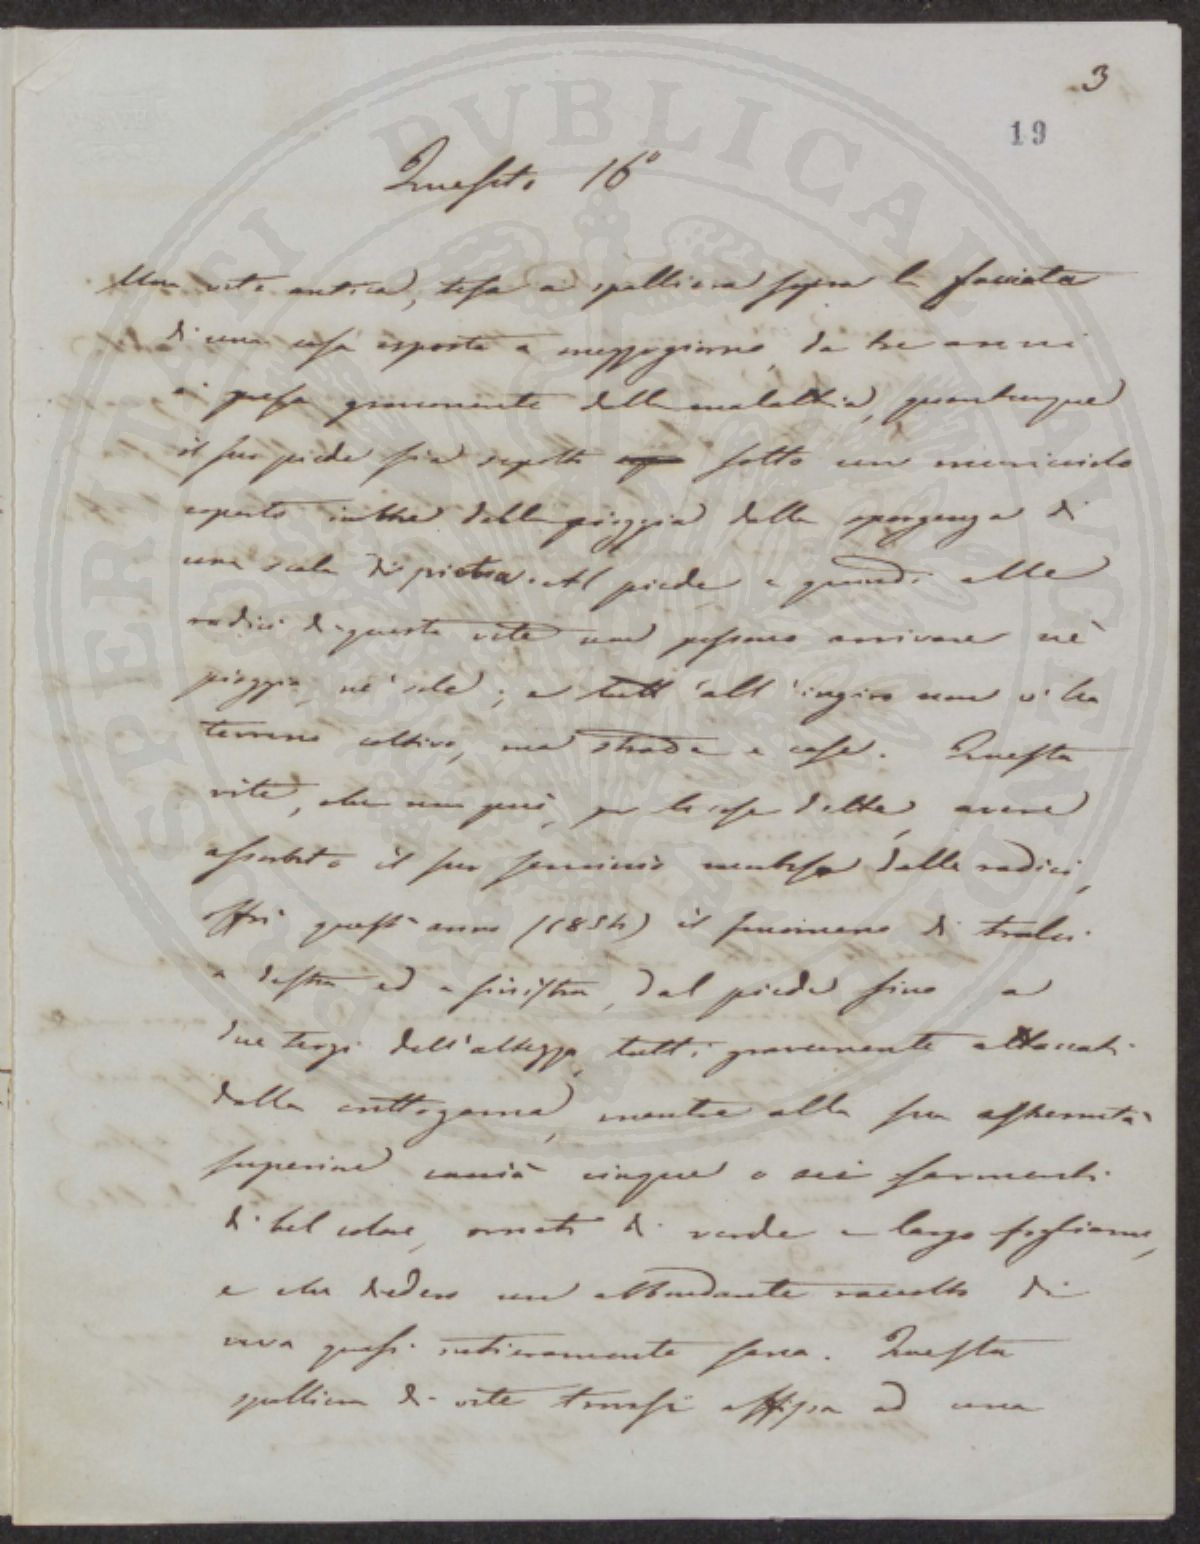 3
19
Quesito 16°
Una vite antica, tesa a spalliera sopra la facciata
di una casa esposta a mezzogiorno, da tre anni
è presa gravemente dalla malattia, quantunque
il suo piede sia sepolto sotto un muricciolo
coperto inoltre dalla pioggia dalla sporgenza di
una scala di pietra. Al piede e quindi alle
radici di questa vite non possono arrivare nè
pioggia, nè sole; e tutt'all'ingiro non vi ha
terreno coltivo, ma strada e case. Questa
vite, che non può, per le cose dette, avere
assorbito il suo seminio morboso dalle radici,
offrì quest'anno (1854) il fenomeno di tralci
a destra ed a sinistra, dal piede fino a
due terzi dell'altezza, tutti gravemente attaccati
dalla crittogama, mentre alla sua estremità
superiore cacciò cinque o sei sarmenti
di bel colore, ornati di verde e largo fogliame,
e che diedero un abbondante raccolto di
uva quasi intieramente sana. Questa
spalliera di vite trovasi affissa ad una